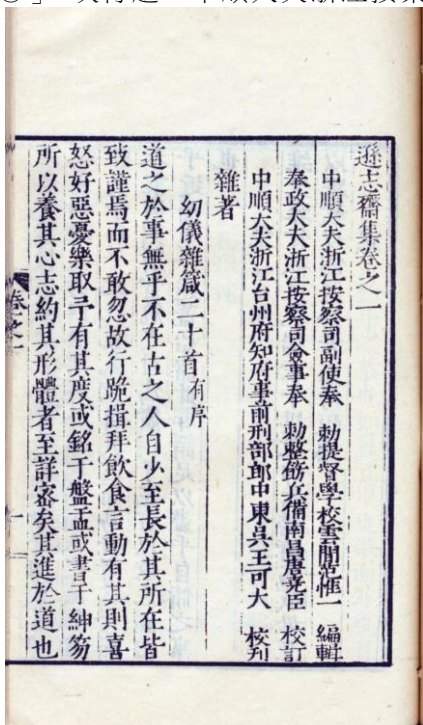 遜志齋集卷之一
中順大夫浙江按察司副使奉 勅提督學校雲間范惟一 編輯
奉政大夫浙江按察司僉事奉 勅整飭兵備南昌唐堯臣 校訂
中順大夫浙江台州府知府事前刑部郎中東吳王可大 校刊
雜著
幼儀雜箴二十首有序
道之於事無乎不在古之人自少至長於其所在皆
致謹焉而不敢忽故行跪揖拜飲食言動有其則喜
怒好惡憂樂取予有其度或銘于盤盂或書于紳笏
所以養其心志約其形體者至詳密矣其進於道也
卷之一